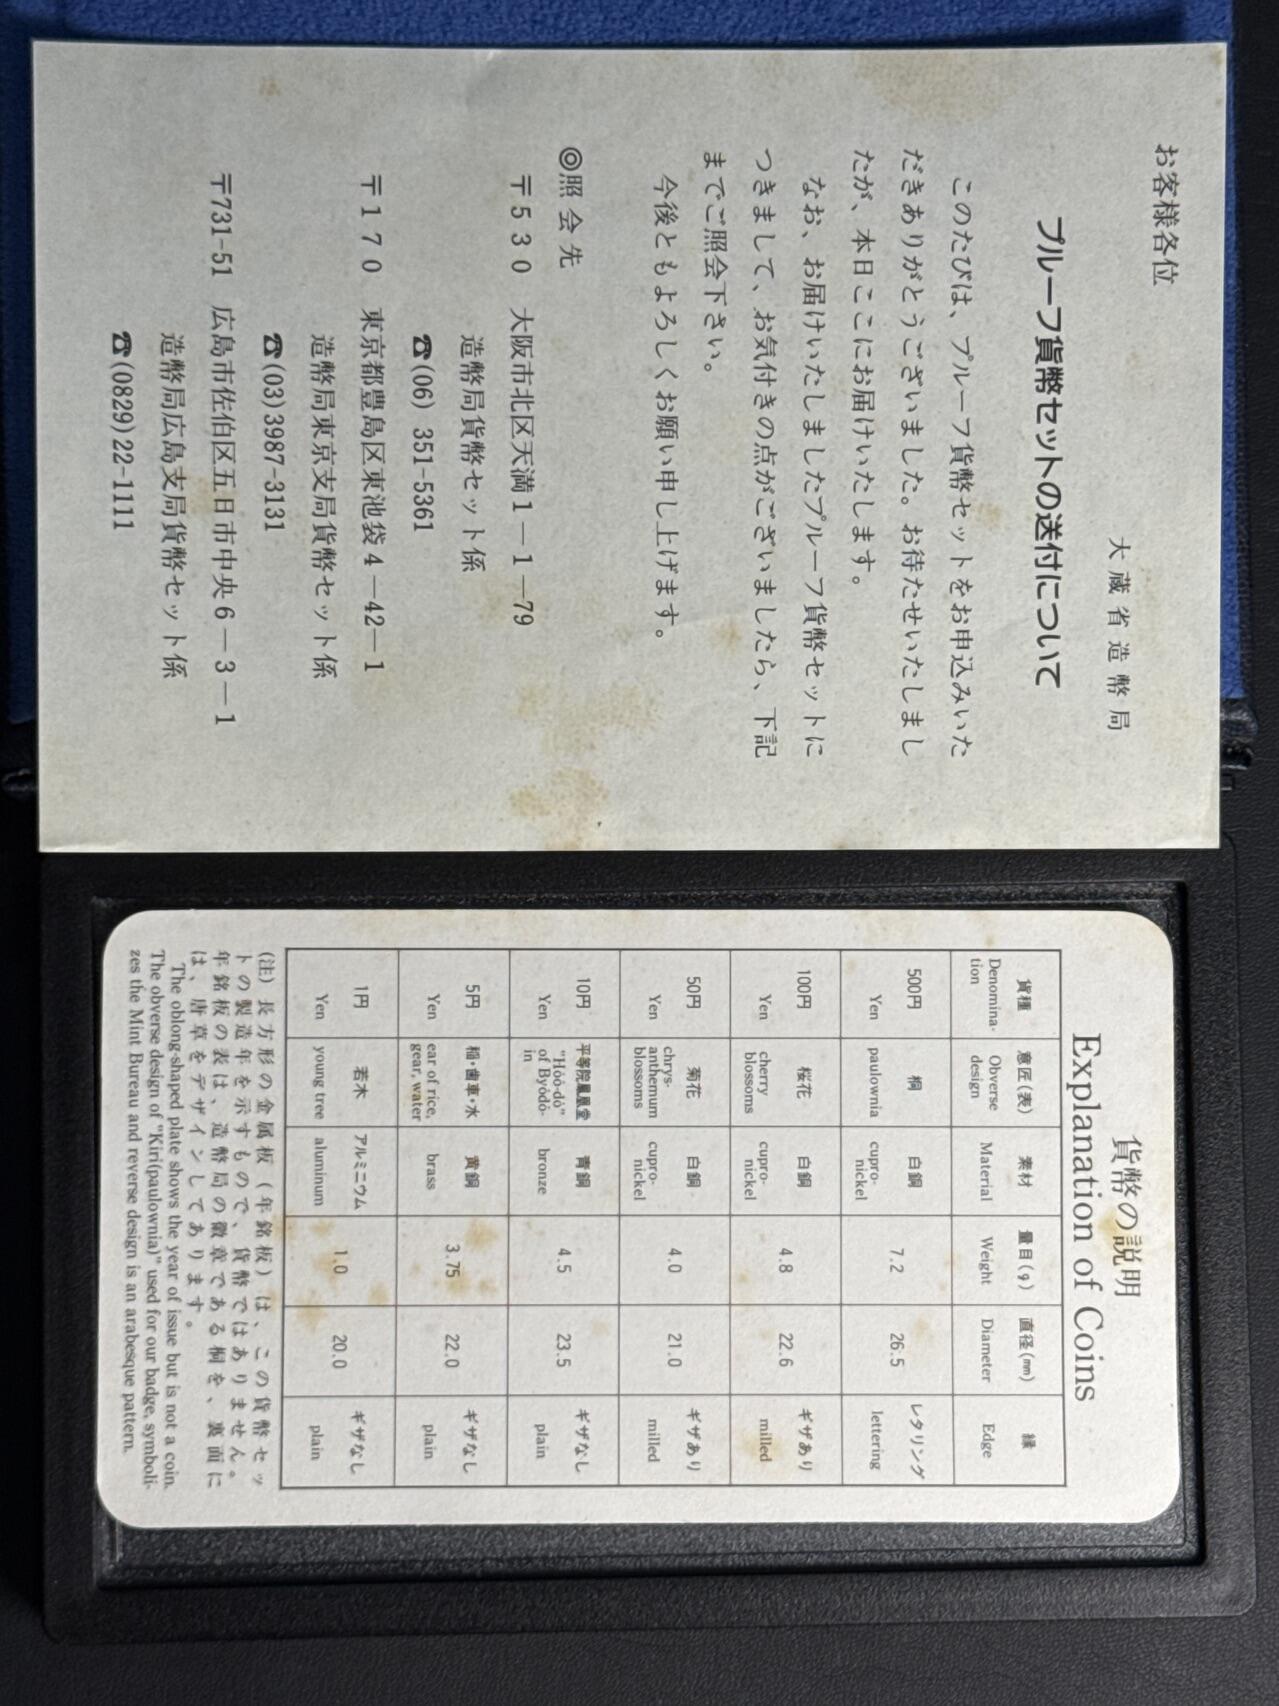 お客様各位
大蔵省造幣局
プルーフ貨幣セットの送付について
このたびは、プルーフ貨幣セットをお申込みいた
だきありがとうございました。お待たせいたしまし
たが、本日ここにお届けいたします。
なお、お届けいたしましたプルーフ貨幣セットに
つきまして、お気付きの点がございましたら、下記
までご照会下さい。
今後ともよろしくお願い申し上げます。
◎照会先
〒530 大阪市北区天満1―1―79
造幣局貨幣セット係
☎(06) 351-5361
〒170 東京都豊島区東池袋4―42―1
造幣局東京支局貨幣セット係
☎(03)3987-3131
〒731-51 広島市佐伯区五日市中央6―3―1
造幣局広島支局貨幣セット係
☎(0829)22-1111
貨幣の説明
Explanation of Coins
貨種 意匠(表) 素材 量目(g) 直径(mm) 縁
Denomina-tion Obverse design Material Weight Diameter Edge
500円 桐 白銅 7.2 26.5 レタリング
Yen paulownia cupro-nickel lettering
100円 桜花 白銅 4.8 22.6 ギザあり
Yen cherry blossoms cupro-nickel milled
50円 菊花 白銅 4.0 21.0 ギザあり
Yen chrys-anthemum blossoms cupro-nickel milled
10円 平等院鳳凰堂 青銅 4.5 23.5 ギザなし
Yen "Hōō-dō" of Byōdō-in bronze plain
5円 稲・歯車・水 黄銅 3.75 22.0 ギザなし
Yen ear of rice, gear, water brass plain
1円 若木 アルミニウム 1.0 20.0 ギザなし
Yen young tree aluminum plain
(注) 長方形の金属板(年銘板)は、この貨幣セッ
トの製造年を示すもので、貨幣ではありません。
年銘板の表は、造幣局の徽章である桐を、裏面に
は、唐草をデザインしてあります。
The oblong-shaped plate shows the year of issue but is not a coin.
The obverse design of "Kiri(paulownia)" used for our badge, symboli-
zes the Mint Bureau and reverse design is an arabesque pattern.